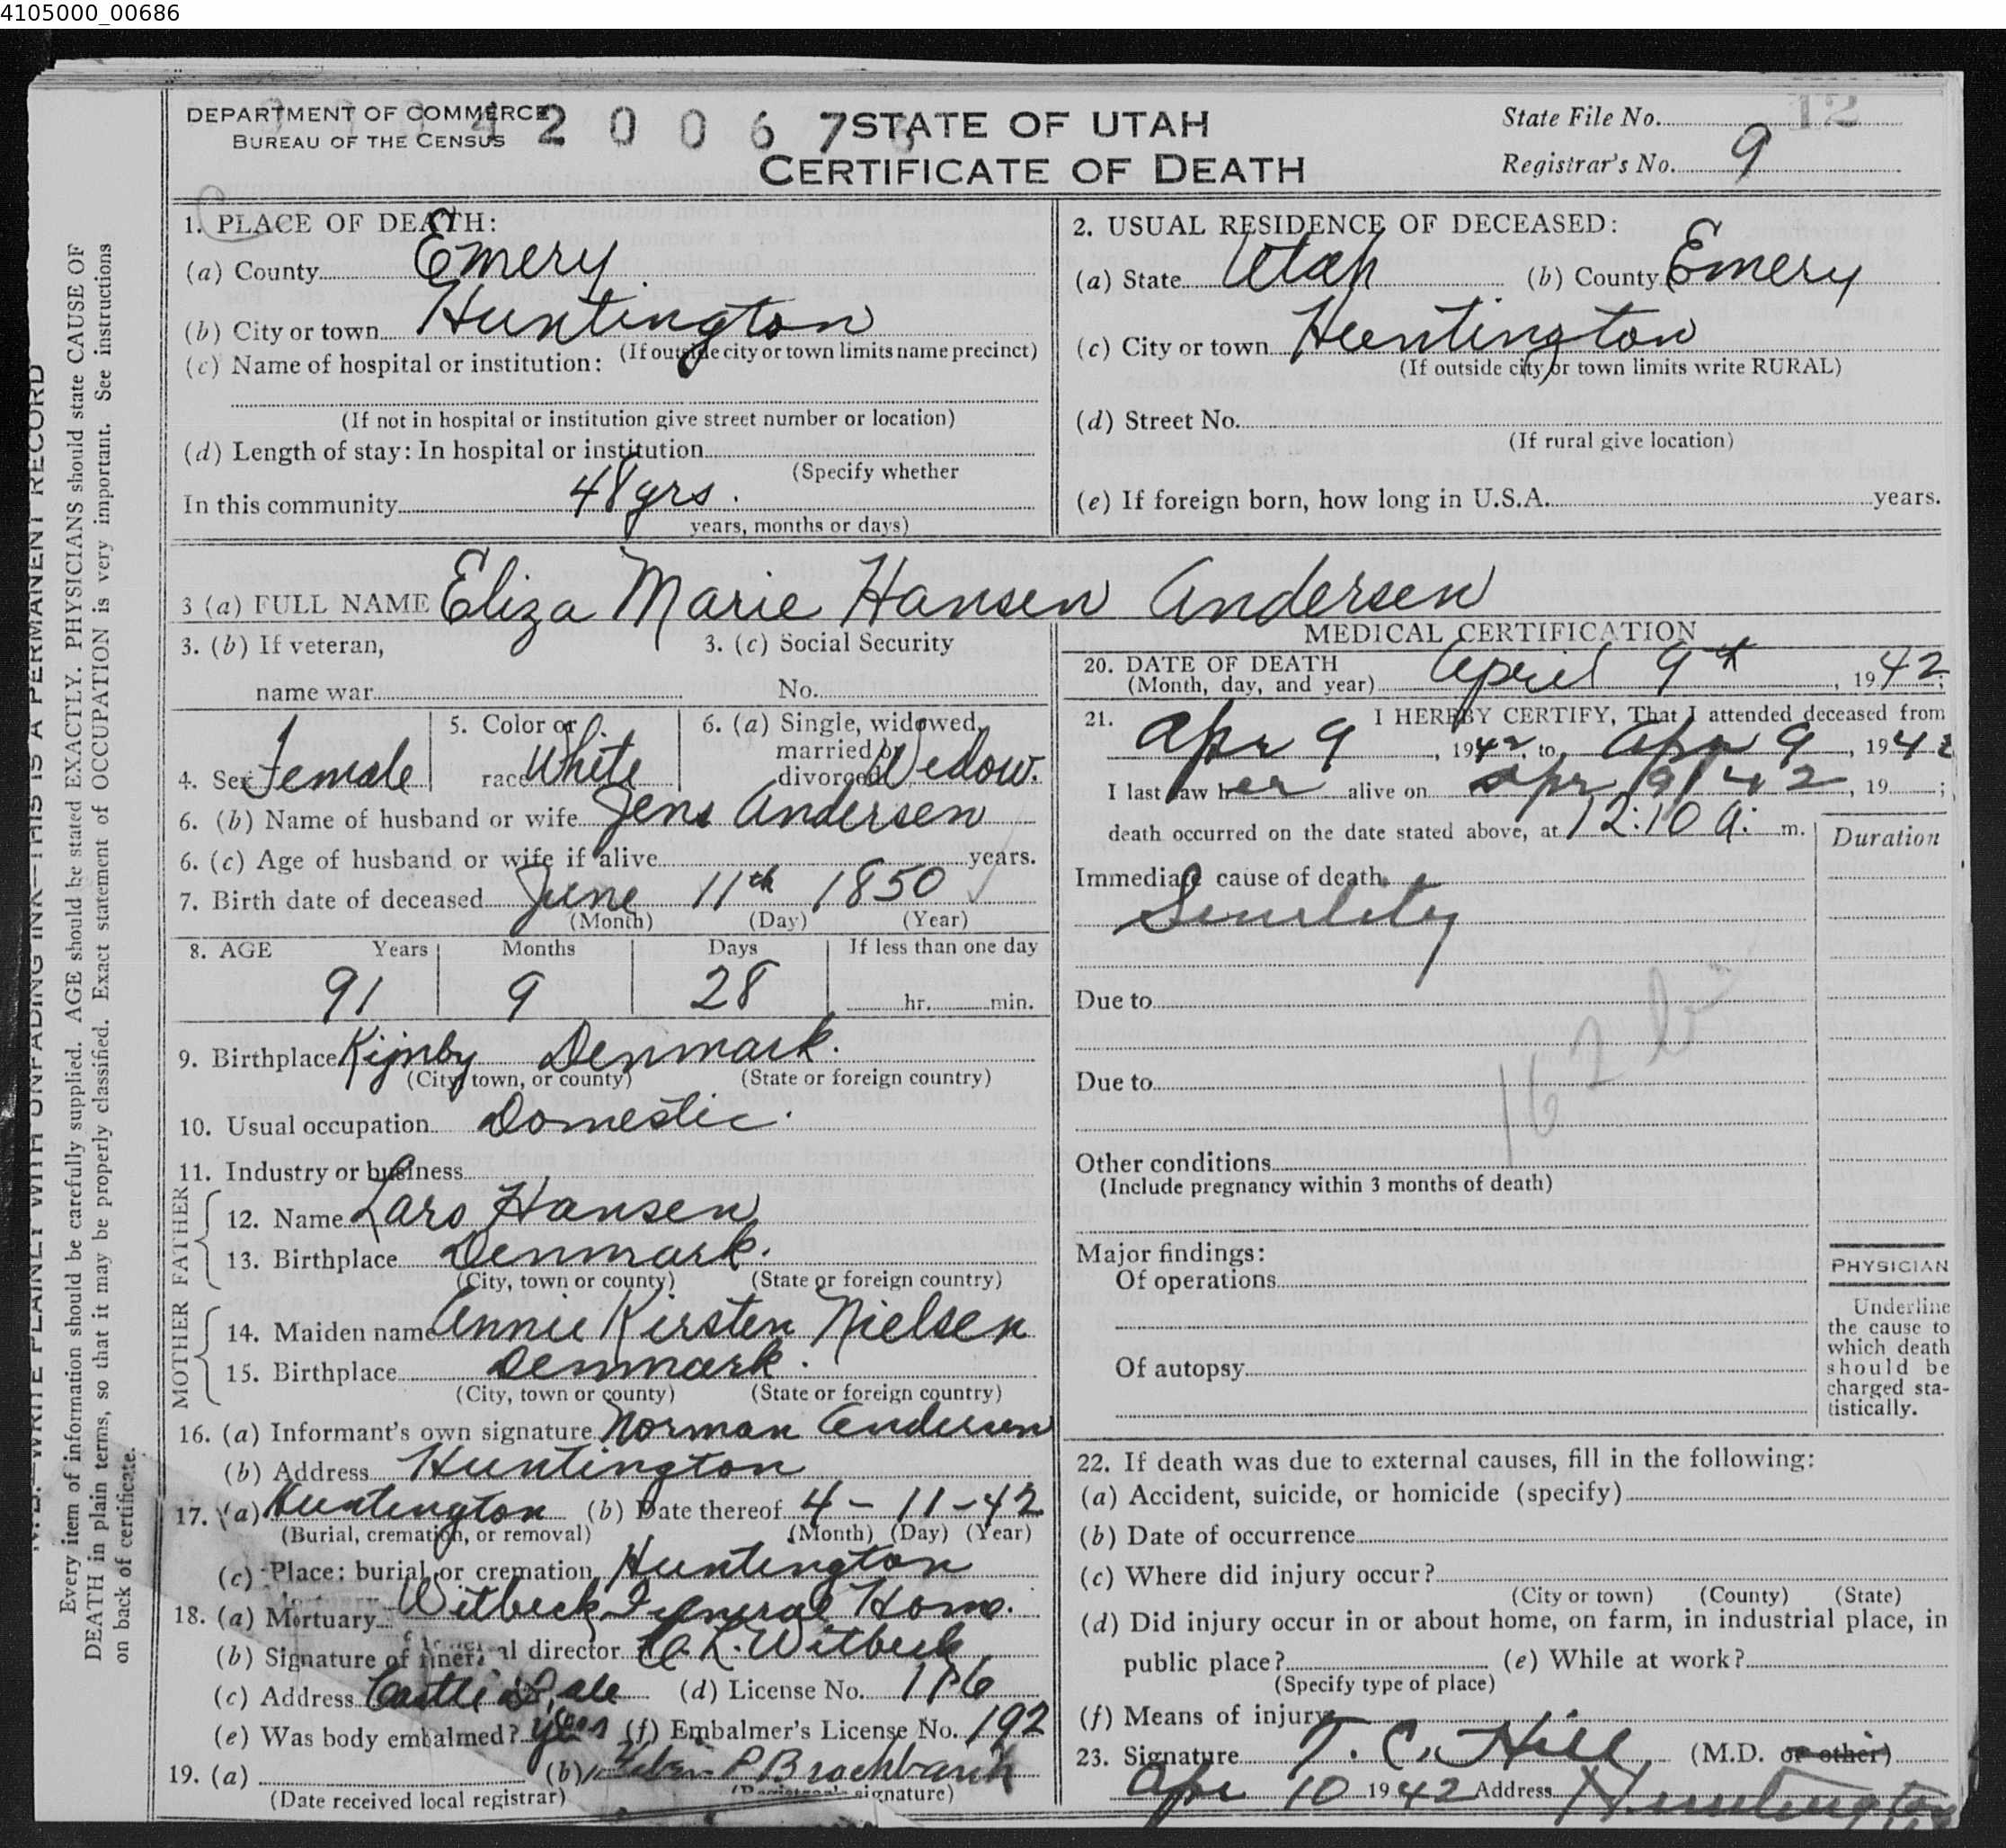 4105000_00686
DEPARTMENT OF COMMERCE
BUREAU OF THE CENSUS
4 2 0 0 6 7
STATE OF UTAH
CERTIFICATE OF DEATH
State File No. 12
Registrar's No. 9
1. PLACE OF DEATH:
(a) County Emery
(b) City or town Huntington
(If outside city or town limits name precinct)
(c) Name of hospital or institution:
(If not in hospital or institution give street number or location)
(d) Length of stay: In hospital or institution
(Specify whether
In this community 48 yrs.
years, months or days)
2. USUAL RESIDENCE OF DECEASED:
(a) State Utah (b) County Emery
(c) City or town Huntington
(If outside city or town limits write RURAL)
(d) Street No.
(If rural give location)
(e) If foreign born, how long in U.S.A. years.
3 (a) FULL NAME Eliza Marie Hansen Andersen
3. (b) If veteran, 3. (c) Social Security
name war No.
4. Sex Female 5. Color or race White 6. (a) Single, widowed, married or divorced Widow.
6. (b) Name of husband or wife Jens Andersen
6. (c) Age of husband or wife if alive years.
7. Birth date of deceased June 11th 1850
(Month) (Day) (Year)
8. AGE Years Months Days If less than one day
91 9 28 hr. min.
9. Birthplace Denmark.
(City, town, or county) (State or foreign country)
10. Usual occupation Domestic.
11. Industry or business
FATHER
12. Name Lars Hansen
13. Birthplace Denmark.
(City, town or county) (State or foreign country)
MOTHER
14. Maiden name Annie Kirsten Nielsen
15. Birthplace Denmark.
(City, town or county) (State or foreign country)
16. (a) Informant's own signature Norman Andersen
(b) Address Huntington
17. (a) Huntington (b) Date thereof 4-11-42
(Burial, cremation, or removal) (Month) (Day) (Year)
(c) Place: burial or cremation Huntington
18. (a) Mortuary Witbeck Funeral Home.
(b) Signature of funeral director C. L. Witbeck
(c) Address Castle Dale (d) License No.
(e) Was body embalmed? yes (f) Embalmer's License No. 192
19. (a) (b) P Brockbank
(Date received local registrar) (Registrar's signature)
MEDICAL CERTIFICATION
20. DATE OF DEATH
(Month, day, and year) April 9th, 1942;
21. I HEREBY CERTIFY, That I attended deceased from
Apr 9, 1942, to Apr 9, 1942
I last saw her alive on Apr 9/42, 19 ;
death occurred on the date stated above, at 12:10 A. m.
Duration
Immediate cause of death
Senility
Due to
162 b
Due to
Other conditions
(Include pregnancy within 3 months of death)
Major findings:
Of operations
Of autopsy
PHYSICIAN
Underline
the cause to
which death
should be
charged sta-
tistically.
22. If death was due to external causes, fill in the following:
(a) Accident, suicide, or homicide (specify)
(b) Date of occurrence
(c) Where did injury occur?
(City or town) (County) (State)
(d) Did injury occur in or about home, on farm, in industrial place, in
public place? (e) While at work?
(Specify type of place)
(f) Means of injury
23. Signature T. C. Hill (M.D. or other)
Apr 10 1942 Address Huntington
N.B.—WRITE PLAINLY WITH UNFADING INK—THIS IS A PERMANENT RECORD
Every item of information should be carefully supplied. AGE should be stated EXACTLY. PHYSICIANS should state CAUSE OF
DEATH in plain terms, so that it may be properly classified. Exact statement of OCCUPATION is very important. See instructions
on back of certificate.